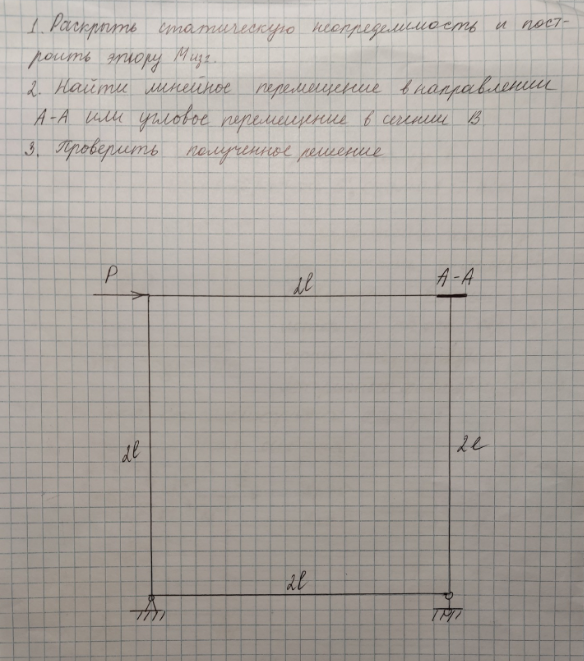 1. Раскрыть статическую неопределимость и пост-
роить эпюру Mизг.
2. Найти линейное перемещение в направлении
А-А или угловое перемещение в сечении В
3. Проверить полученное решение
P
2l
A-A
2l
2l
2l